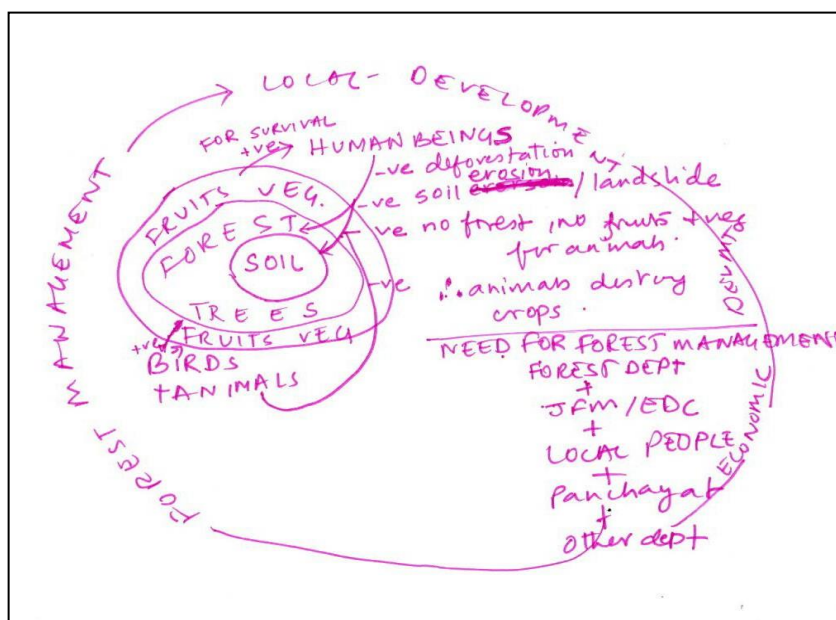 LOCAL- DEVELOPMENT
FOR SURVIVAL
+ve
HUMAN BEINGS
-ve deforestation
erosion
-ve soil /landslide
-ve no forest, no fruits + veg
for animals.
-ve ∴ animals destroy
crops.
FRUITS VEG.
FOREST
SOIL
TREES
FRUITS VEG
+ve
BIRDS
+ANIMALS
NEED FOR FOREST MANAGEMENT
FOREST DEPT
+
JFM/EDC
+
LOCAL PEOPLE
+
Panchayat
+
other dept
ECONOMIC
FOREST MANAGEMENT